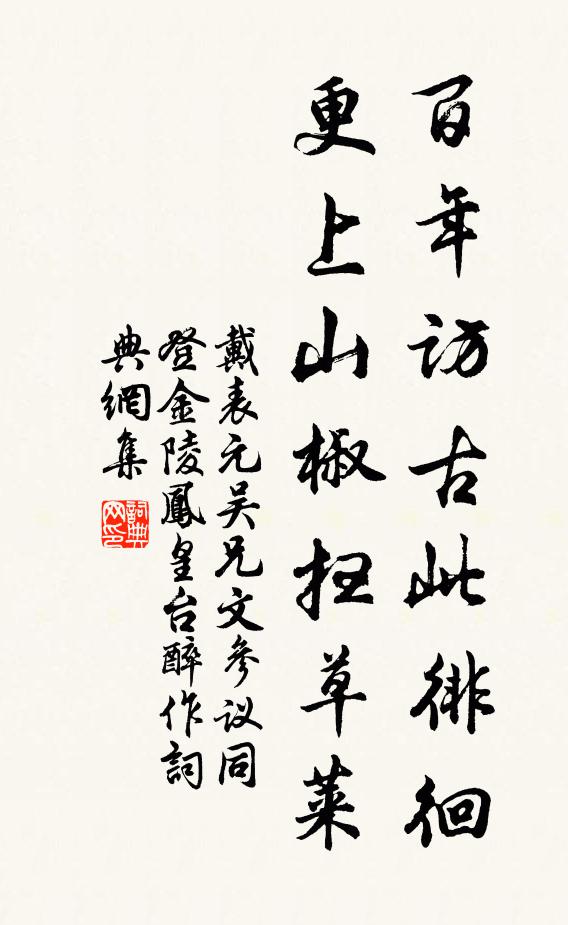 百年访古此徘徊
更上山椒扫草莱
戴表元吴兄文参议同
登金陵鳳皇台醉作詞
典網集
詞典
网印